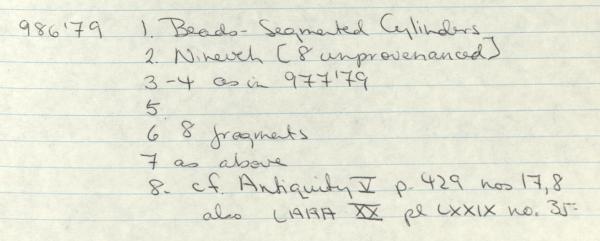 986'79 1. Beads - Segmented Cylinders
2. Nineveh [8 unprovenanced]
3-4 as in 977'79
5
6 8 fragments
7 as above
8. cf. Antiquity V p. 429 nos 17, 8
also LAAA XX pl LXXIX no. 35